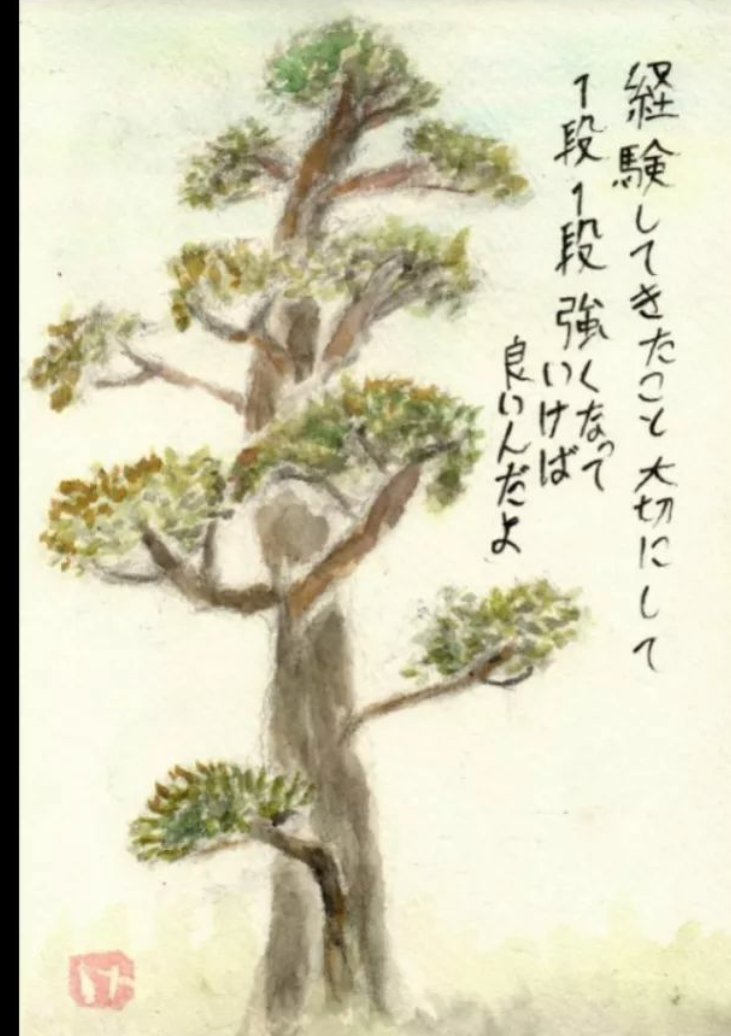 経験してきたこと大切にして
1段1段強くなって
いけば
良いんだよ
け